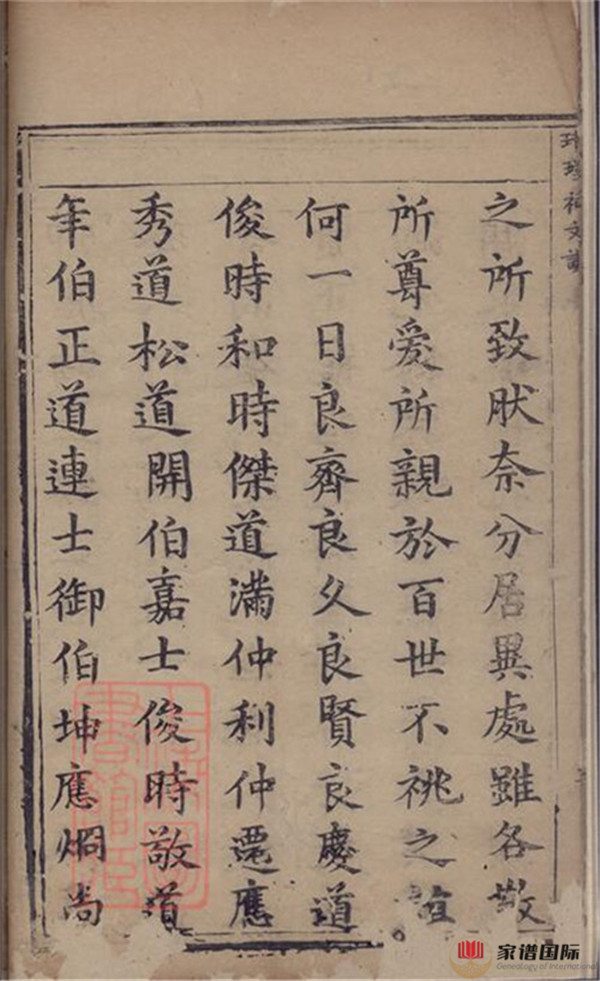 之所致肰奈分居異處雖各敬
所尊愛所親於百世不祧之誼
何一日良齊良久良賢良慶道
俊時和時傑道滿仲利仲還應
秀道松道開伯嘉士俊時敬道
年伯正道連士御伯坤應烱尚
家谱国际
Genealogy of International